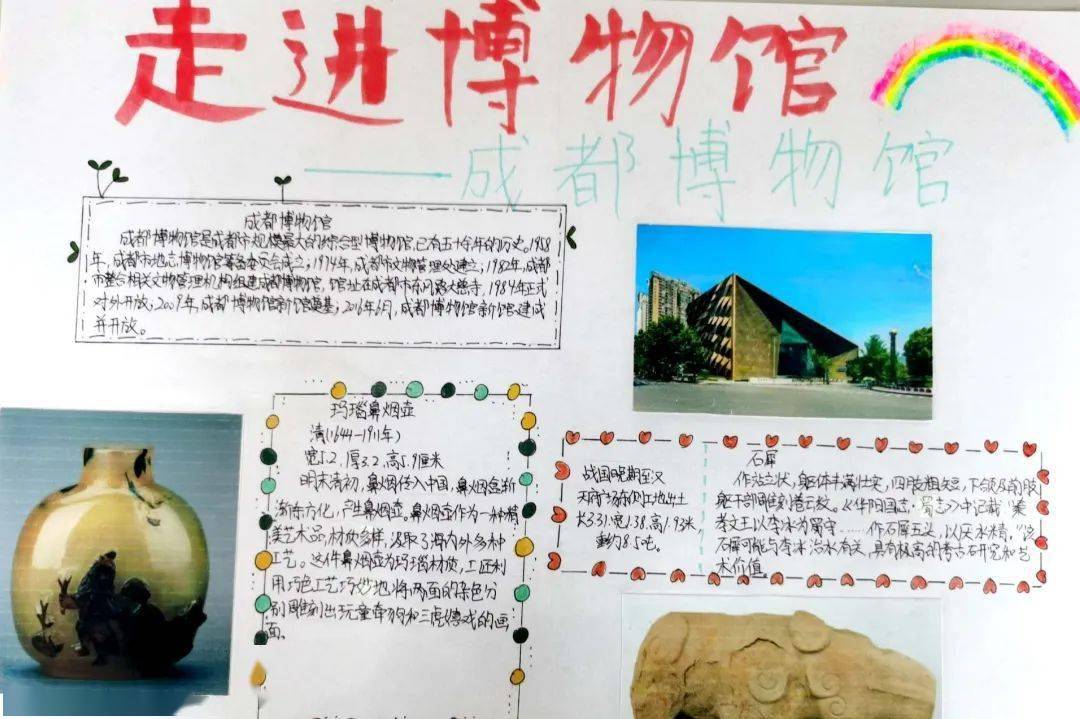 走进博物馆
——成都博物馆
成都博物馆
成都博物馆是成都市规模最大的综合型博物馆,已有五十余年的历史。1958
年,成都市地志博物馆筹备委员会成立;1974年,成都市文物管理处建立;1982年,成都
市整合相关文物管理机构组建成都博物馆,馆址在成都市东风路大慈寺,1984年正式
对外开放;2009年,成都博物馆新馆奠基;2016年6月,成都博物馆新馆建成
并开放。
玛瑙鼻烟壶
清(1644-1911年)
宽5.2,厚3.2,高5.9厘米
明末清初,鼻烟传入中国,鼻烟盒渐
渐东方化,产生鼻烟壶。鼻烟壶作为一种精
美艺术品,材质多样,汲取了海内外多种
工艺。这件鼻烟壶为玛瑙材质,工匠利
用巧色工艺巧妙地将两面的杂色分
别雕刻出玩童牵狗和三虎嬉戏的画
面。
战国晚期至汉
天府广场东侧工地出土
长3.31.宽1.38.高1.93米
重约8.5吨。
石犀
作站立状,躯体丰满壮实,四肢粗短,下颌及前肢
躯干部雕刻卷云纹。《华阳国志·蜀志》中记载"秦
孝文王以李冰为蜀守……作石犀五头,以厌水精。"该
石犀可能与李冰治水有关,具有极高的考古研究和艺
术价值